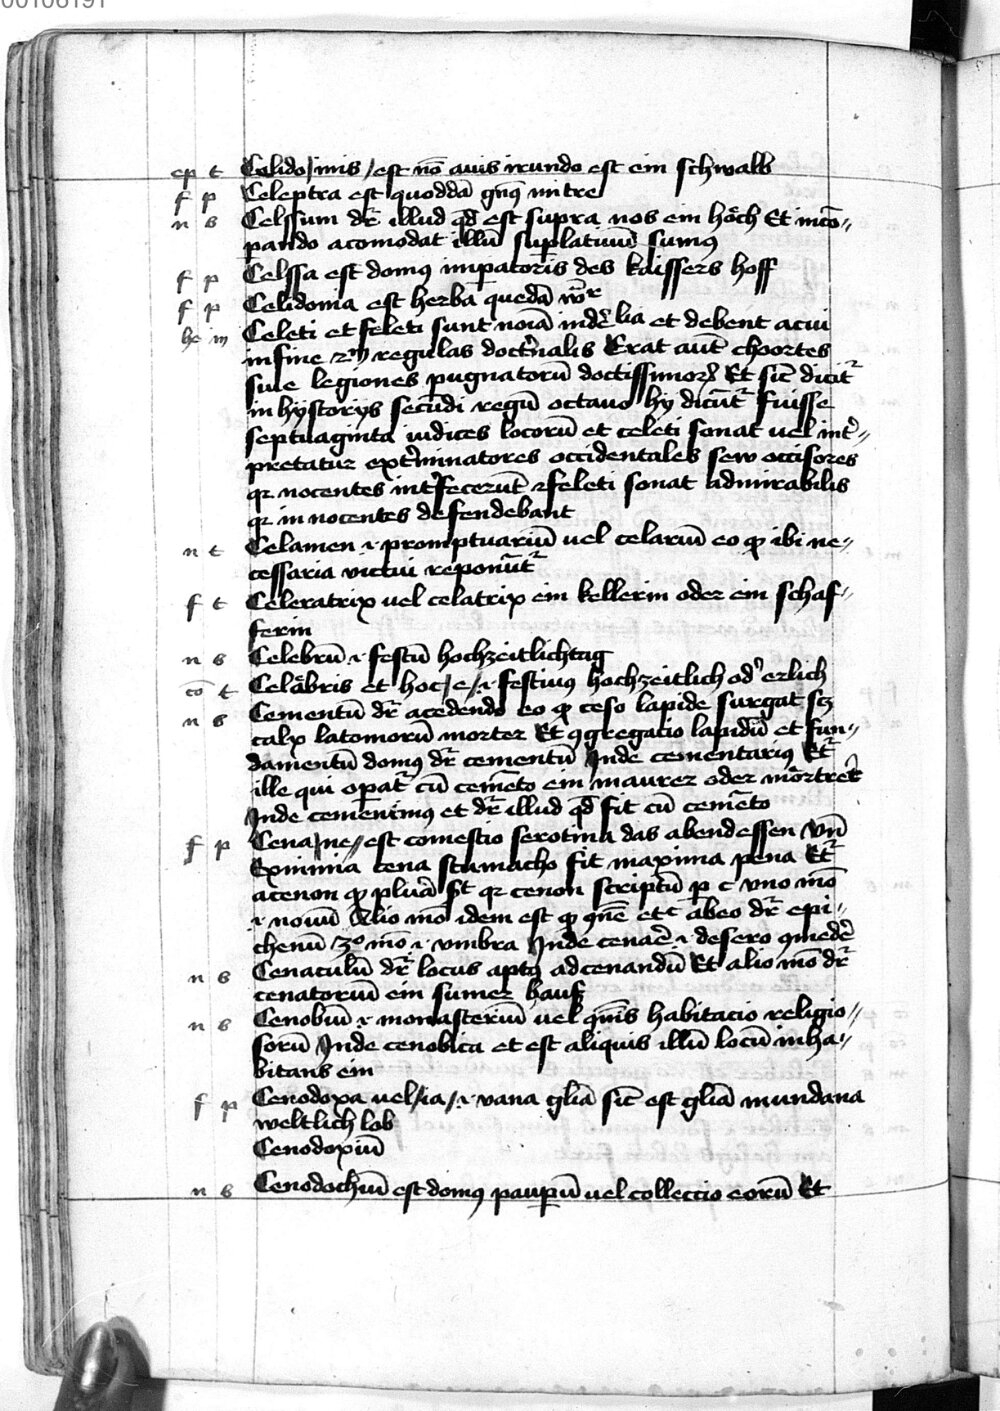 00106191
ep t Celido /inis / est nō auis irundo est ein schwalb
f p Celeptra est quoddā gnꝰ mitre
n s Celssum dr̄ illud qd̄ est supra nos ein hoͤch Et incō⸗
pando acomodat illū suplatiuū sumꝰ
f p Celssa est domꝰ impatoris des kaissers hoff
f p Celidonia est herba quedā
Celeti et feleti sunt noīa et debent acui
in fine regulas doctͥnalis Erat aūt choortes
siue legiones pugnatorū doctissimoꝝ Et sic̄ dicitᷣ
in hystorijs secūdi regū octauo hy dicūtᷣ fuisse
septuaginta iudices locorū et celeti sonat uel int̄⸗
pretatur ext̄minatores occidentales sew occisores
qꝛ nocentes int̄fecerūt ⁊ feleti sonat admirabilis
qꝛ in nocentes defendebant
n t Celamen .i. promptuariū uel celariū eo ꝙ ibi ne⸗
cessaria victui reponūtᷣ
f t Celeratrix uel celatrix ein kellerin oder ein schaf⸗
ferin
n s Celebrū .i. festū hochzeitlichtag
cō t Celaͤbris et hoc /e/ .i. festiuꝰ hochzeitlich od' erlich
n s Cementū dr̄ acedendo eo ꝙ ceso lapide surgat scꝫ
calx latomorū morter Et ꝯgregatio lapidū et fun⸗
damentū domꝰ dr̄ cementū Inde cementariꝰ Etᷣ
ille qui opatᷣ cū cemēto ein maurer oder
Inde et dr̄ illud qd̄ fit cū cemēto
f p Cena /ne/ est comestio serotina das abendessen Vn̄
Eximia cena stumacho fit maxima pena Etᷣ
acenon ꝙ pluā qꝛ cenon scriptū p c vno mō
.i. nouū Alio mō idem est ꝙ abeo dr̄ epi⸗
chenū 3º mō .i. vmbra Inde cenāe .i. desero ꝯmedē
n s Cenaculū dr̄ locus aptꝰ ad cenandū Et alio mō dr̄
cenatoriū ein sumer haus
n s Cenobiū .i. monasteriū uel habitacio religio⸗
sorū Inde cenobica et est aliquis illū locū inha⸗
bitans ein
f p Cenodoxa uel /ia/ .i. vana glīa sic̄ est glīa mundana
weltlich lob
Cenodoxiū
n s Cenodochiū est domꝰ paupū uel colleccio eorū Et